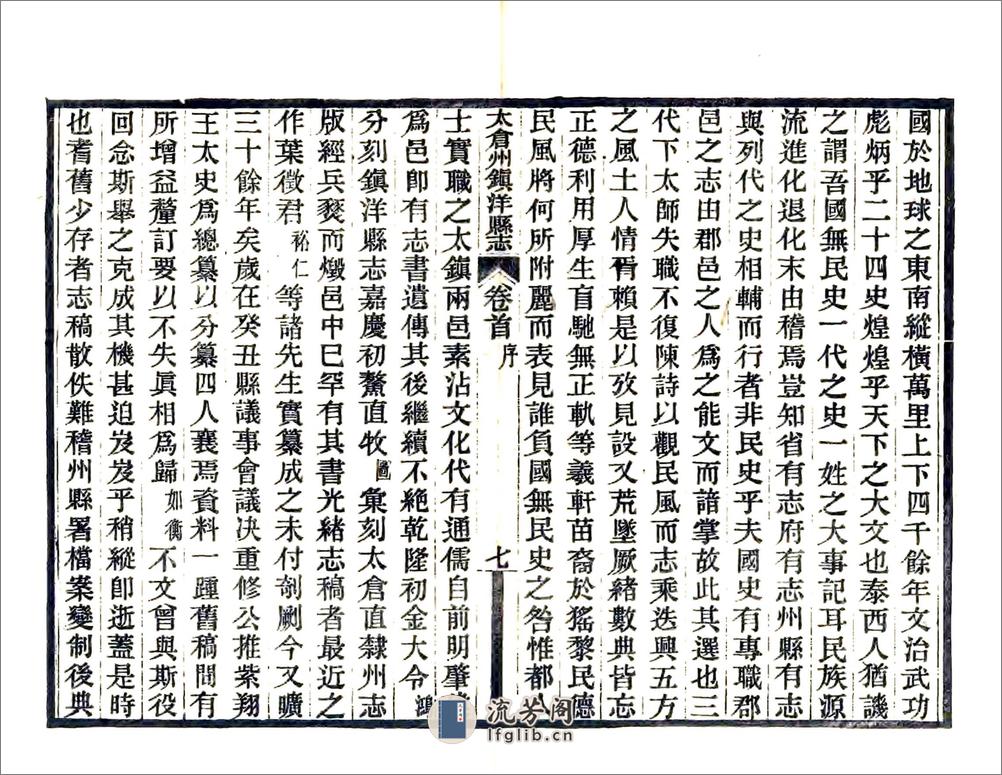 國於地球之東南縱橫萬里上下四千餘年文治武功
彪炳乎二十四史煌煌乎天下之大文也泰西人猶譏
之謂吾國無民史一代之史一姓之大事記耳民族源
流進化退化末由稽焉豈知省有志府有志州縣有志
與列代之史相輔而行者非民史乎夫國史有專職郡
邑之志由郡邑之人爲之能文而諳掌故此其選也三
代下太師失職不復陳詩以觀民風而志乘迭興五方
之風土人情胥賴是以攷見設又荒墜厥緒數典皆忘
正德利用厚生盲馳無正軌等羲軒苗裔於猺黎民德
民風將何所附麗而表見誰負國無民史之咎惟都
太倉州鎮洋縣志 卷首 序 七
士實職之太鎭兩邑素沾文化代有通儒自前明肇
爲邑卽有志書遺傳其後繼續不絶乾隆初金大令鴻
分刻鎭洋縣志嘉慶初鰲直牧圖彙刻太倉直隸州志
版經兵燹而燬邑中已罕有其書光緒志稿者最近之
作葉徵君裕仁等諸先生實纂成之未付剞劂今又曠
三十餘年矣歲在癸丑縣議事會議決重修公推紫翔
王太史爲總纂以分纂四人襄焉資料一踵舊稿間有
所增益釐訂要以不失眞相爲歸如衡不文曾與斯役
回念斯舉之克成其機甚迫岌岌乎稍縱卽逝蓋是時
也耆舊少存者志稿散佚難稽州縣署檔案變制後典
流芳阁
lfglib.cn